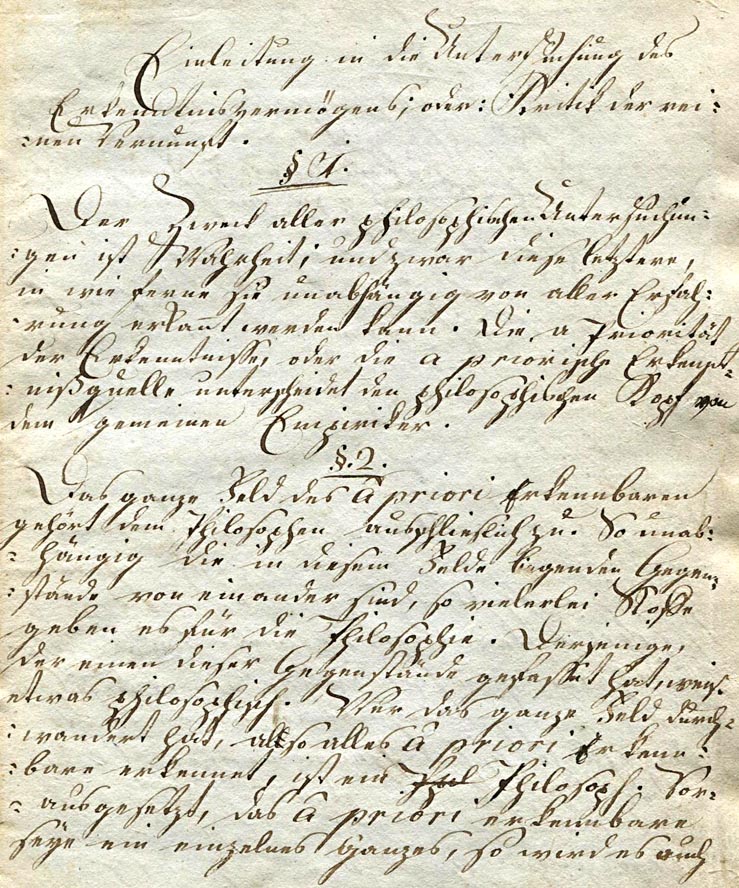 Einleitung in die Untersuchung des
Erkenntnisvermögens; oder: Kritik der rei:
:nen Vernunft.
§ 1.
Der Zweck aller philosophischen Untersuchun:
:gen ist Wahrheit, und zwar diese letztere,
in wie ferne sie unabhängig von aller Erfah:
:rung erkannt werden kann. Die a Priorität
der Erkenntnisse, oder die a priorische Erkennt:
:nißquelle unterscheidet den philosophischen Kopf von
dem gemeinen Empiriker.
§. 2.
Das ganze Feld des à priori Erkennbaren
gehört dem Philosophen ausschließlich zu. So unab:
:hängig die in diesem Felde liegenden Gegen:
:stände von einander sind, so vielerlei Stoffe
geben es für die Philosophie. Derjenige,
der einen dieser Gegenstände gefasset hat, weis
etwas philosophisch. Wer das ganze Feld durch:
:wandert hat, also alles à priori Erkenn:
:bare erkennet, ist ein Philosoph. Vor:
:ausgesetzt, das à priori erkennbare
seye ein einzelnes Ganzes, so wird es auch